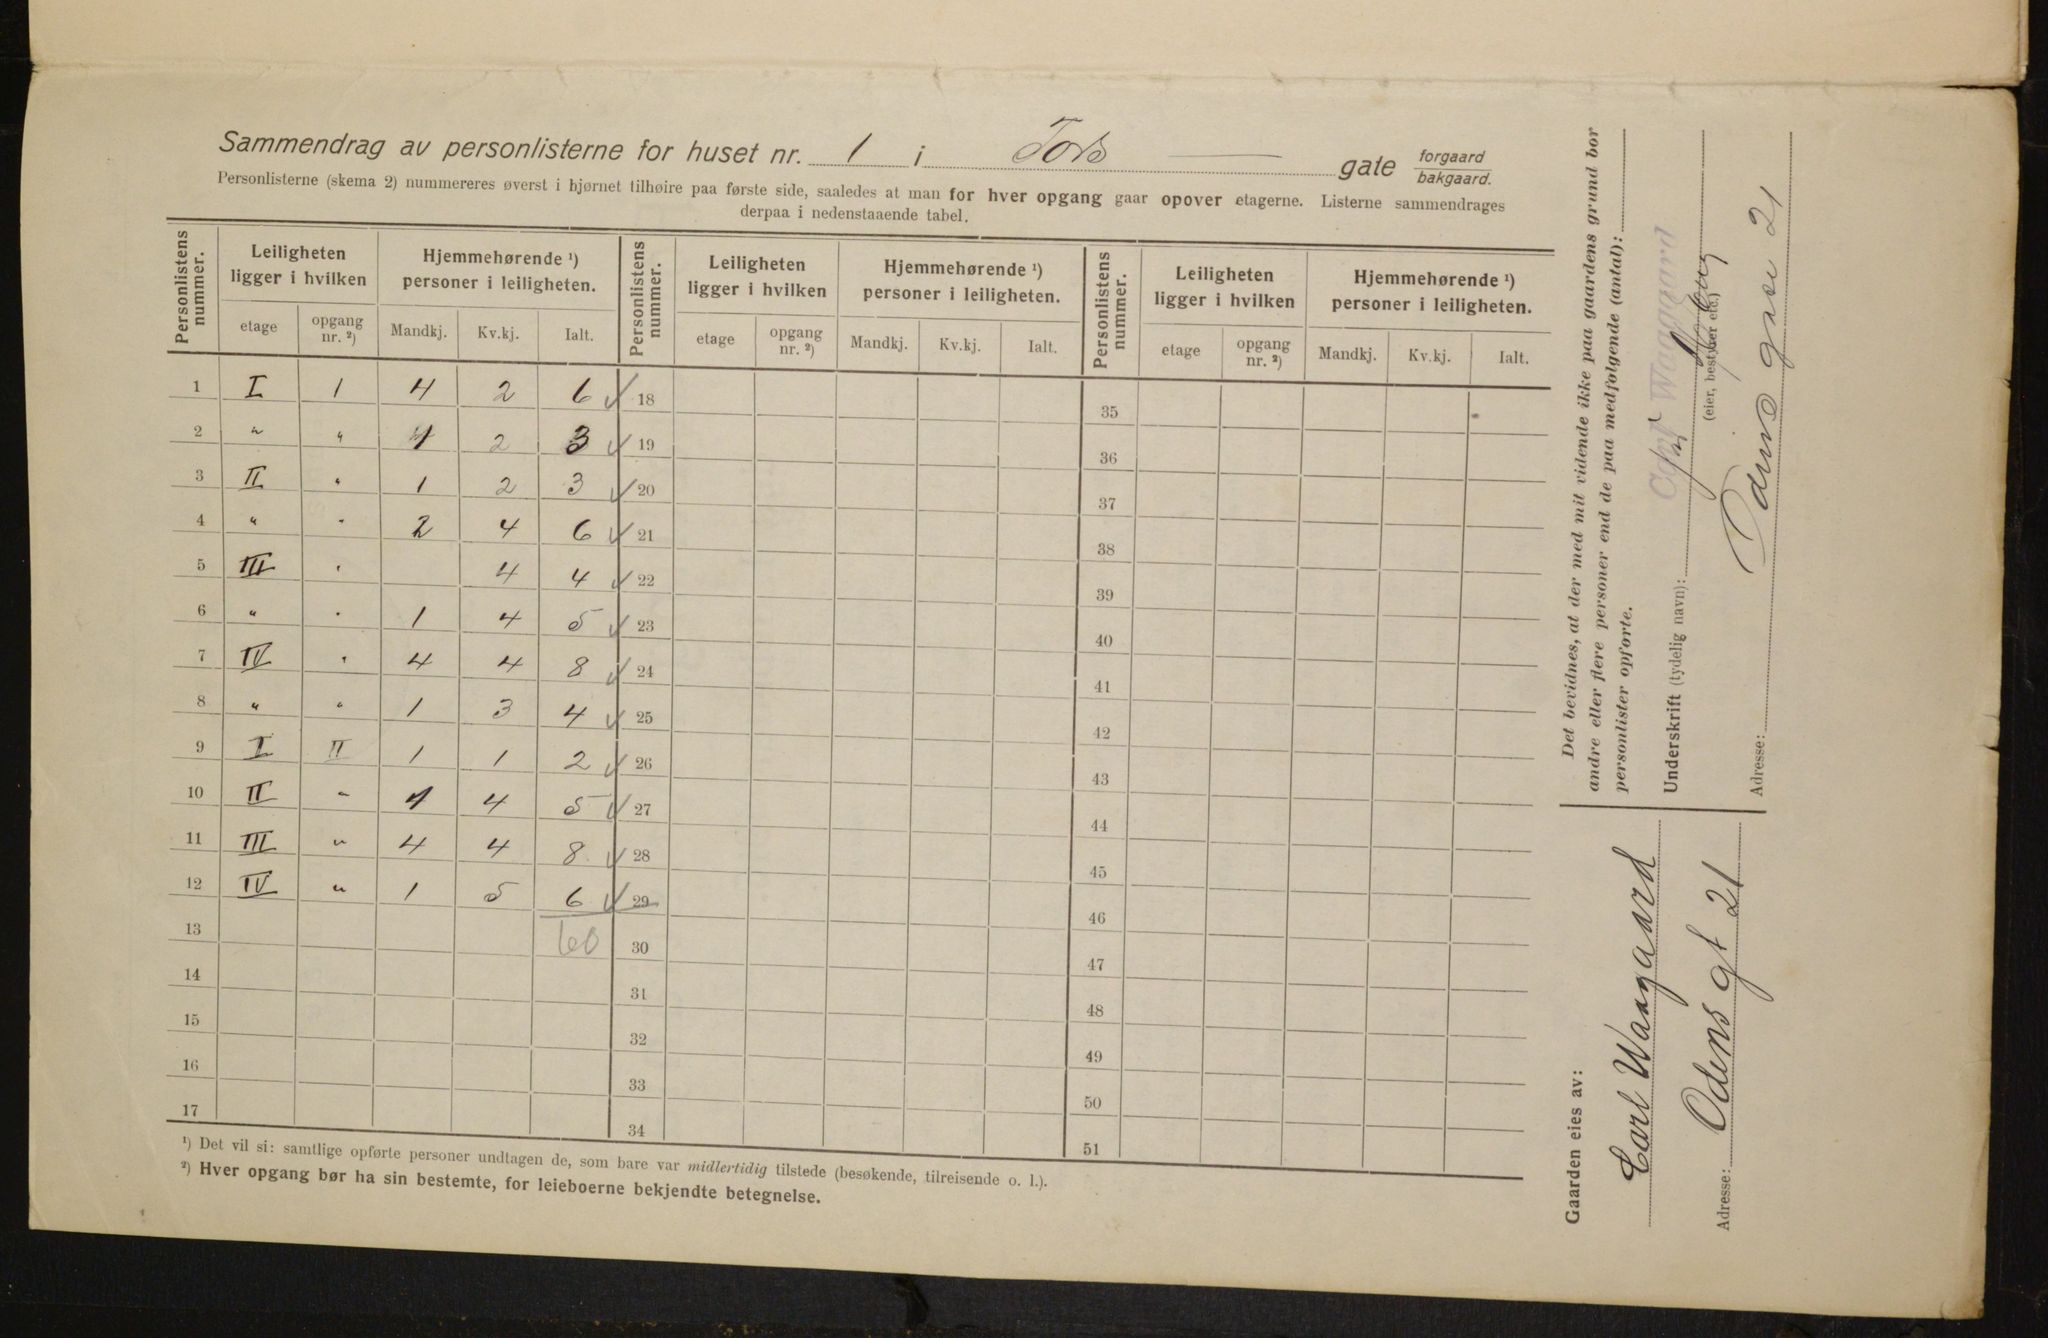 Sammendrag av personlisterne for huset nr. 1 i Tors gate forgaard bakgaard.
Personlisterne (skema 2) nummereres øverst i hjørnet tilhøire paa første side, saaledes at man for hver opgang gaar opover etagerne. Listerne sammendrages
derpaa i nedenstaaende tabel.
Personlistens nummer. Leiligheten ligger i hvilken Hjemmehørende ¹) personer i leiligheten. Personlistens nummer. Leiligheten ligger i hvilken Hjemmehørende ¹) personer i leiligheten. Personlistens nummer. Leiligheten ligger i hvilken Hjemmehørende ¹) personer i leiligheten.
etage opgang nr. ²) Mandkj. Kv.kj. Ialt. etage opgang nr. ²) Mandkj. Kv.kj. Ialt. etage opgang nr. ²) Mandkj. Kv.kj. Ialt.
1 I 1 4 2 6 ✓ 18 35
2 " " 1 2 3 ✓ 19 36
3 II " 1 2 3 ✓ 20 37
4 " " 2 4 6 ✓ 21 38
5 III " 4 4 ✓ 22 39
6 " " 1 4 5 ✓ 23 40
7 IV " 4 4 8 ✓ 24 41
8 " " 1 3 4 ✓ 25 42
9 I II 1 1 2 ✓ 26 43
10 II " 1 4 5 ✓ 27 44
11 III " 4 4 8 ✓ 28 45
12 IV " 1 5 6 ✓ 29 46
13 60 30 47
14 31 48
15 32 49
16 33 50
17 34 51
¹) Det vil si: samtlige opførte personer undtagen de, som bare var midlertidig tilstede (besøkende, tilreisende o. l.).
²) Hver opgang bør ha sin bestemte, for leieboerne bekjendte betegnelse.
Det bevidnes, at der med mit vidende ikke paa gaardens grund bor
andre eller flere personer end de paa medfølgende (antal):
personlister opførte.
Carl Waagaard
Underskrift (tydelig navn):
(eier, bestyrer etc.)
Adresse: Odins gase 21
Gaarden eies av:
Carl Waagaard
Adresse: Odens gt 21